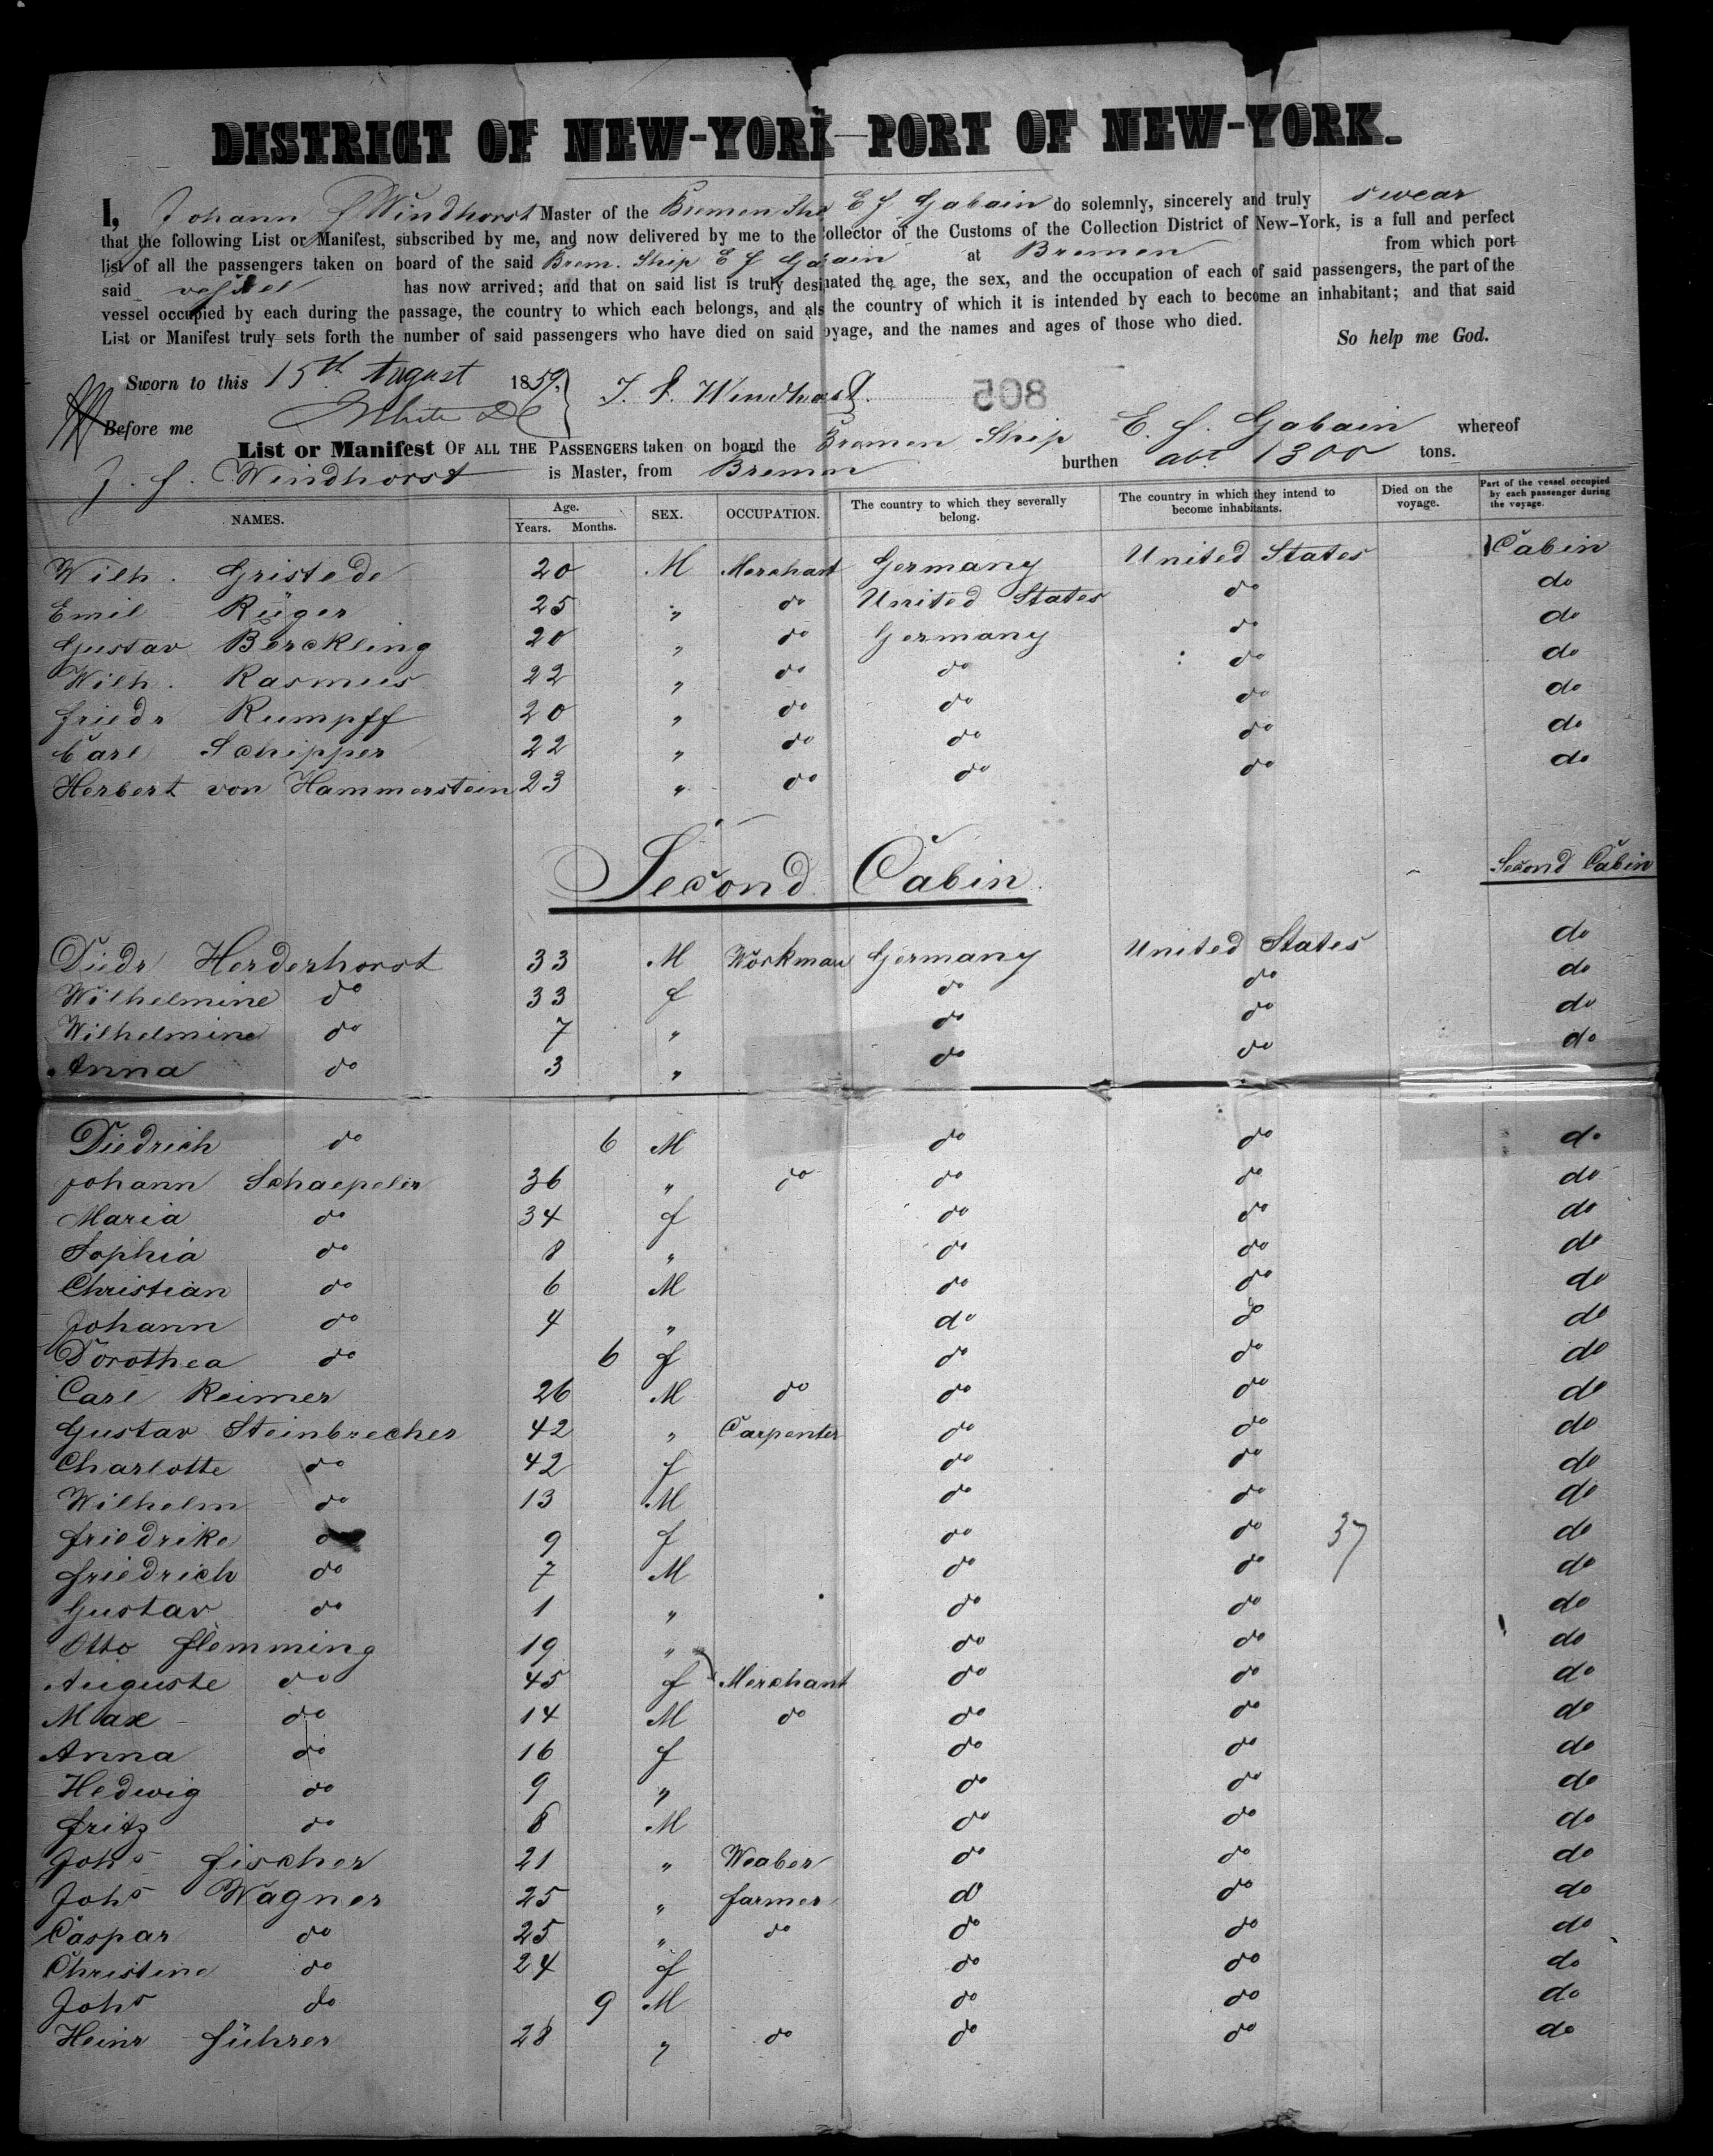 DISTRICT OF NEW-YORK—PORT OF NEW-YORK.
I, Johann f Windhorst Master of the Bremen Ship E f. Gabain do solemnly, sincerely and truly swear
that the following List or Manifest, subscribed by me, and now delivered by me to the Collector of the Customs of the Collection District of New-York, is a full and perfect
list of all the passengers taken on board of the said Brem. Ship E f Gabain at Bremen from which port
said vessel has now arrived; and that on said list is truly designated the age, the sex, and the occupation of each of said passengers, the part of the
vessel occupied by each during the passage, the country to which each belongs, and also the country of which it is intended by each to become an inhabitant; and that said
List or Manifest truly sets forth the number of said passengers who have died on said voyage, and the names and ages of those who died. So help me God.
Sworn to this 15th August 1859, J. f. Windhorst. 805
Before me White
List or Manifest OF ALL THE PASSENGERS taken on board the Bremen Ship E. f. Gabain whereof
J. f. Windhorst is Master, from Bremen burthen abt 1300 tons.
NAMES. Age. Years. Months. SEX. OCCUPATION. The country to which they severally belong. The country in which they intend to become inhabitants. Died on the voyage. Part of the vessel occupied by each passenger during the voyage.
Wilh. Gristede 20 M Merchant Germany United States Cabin
Emil Rüger 25 " do United States do do
Gustav Berckling 20 " do Germany do do
Wilh. Rasmus 22 " do do do do
friedr Rumpff 20 " do do do do
Carl Schipper 22 " do do do do
Herbert von Hammerstein 23 " do do do do
Second Cabin. Second Cabin
Diedr Herderhorst 33 M Workman Germany United States do
Wilhelmine do 33 f do do do
Wilhelmine do 7 " do do do
Anna do 3 " do do do
Diedrich do 6 M do do do
Johann Schaepeler 36 " do do do do
Maria do 34 f do do do
Sophia do 8 " do do do
Christian do 6 M do do do
Johann do 4 " do do do
Dorothea do 6 f do do do
Carl Reimer 26 M do do do do
Gustav Steinbrecher 42 " Carpenter do do do
Charlotte do 42 f do do do
Wilhelm do 13 M do do do
friedrike do 9 f do do 37 do
friedrich do 7 M do do do
Gustav do 1 " do do do
Otto flemming 19 " do do do
Auguste do 45 f Merchant do do do
Max do 14 M do do do do
Anna do 16 f do do do
Hedwig do 9 " do do do
fritz do 8 M do do do
Johs fischer 21 " Weaber do do do
Johs Wagner 25 " farmer do do do
Caspar do 25 " do do do do
Christine do 24 f do do do
Johs do 9 M do do do
Heinr führer 28 " do do do do